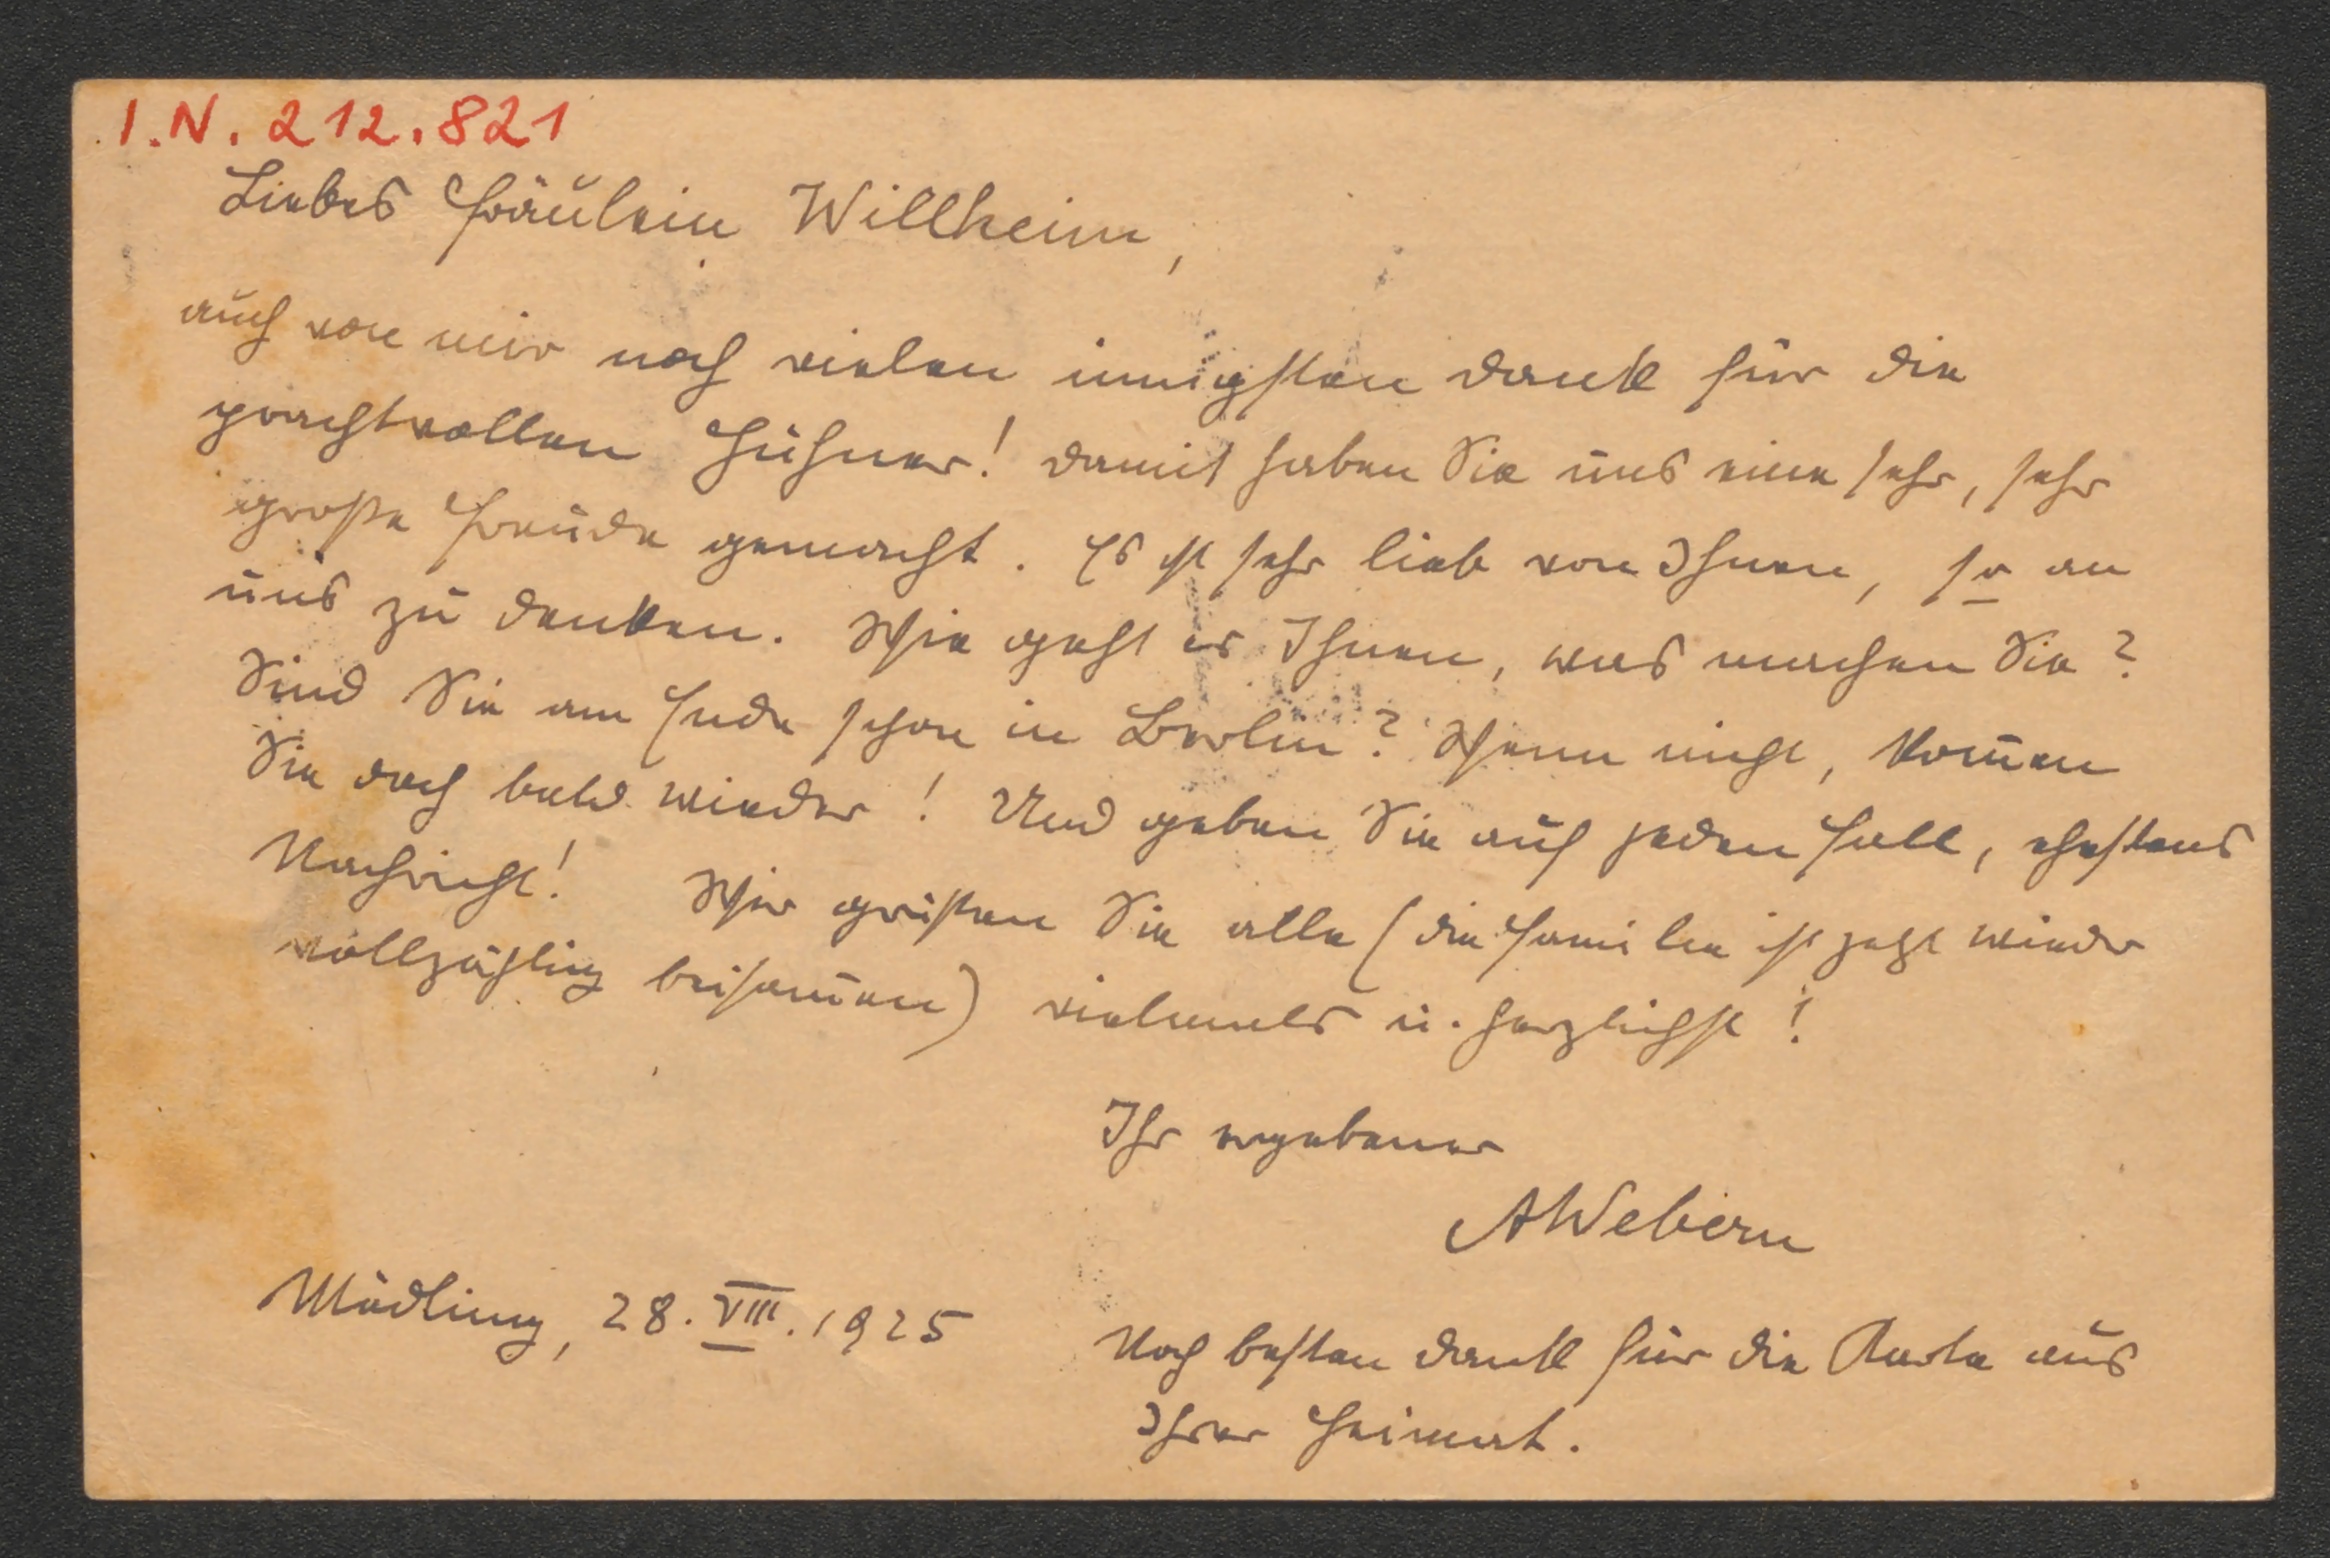 I.N. 212.821
Liebes Fräulein Willheim,
auch von mir noch vielen innigsten Dank für die
prachtvollen Hühner! Damit haben Sie uns eine sehr, sehr
große Freude gemacht. Es ist sehr lieb von Ihnen, so an
uns zu denken. Wie geht es Ihnen, was machen Sie?
Sind Sie am Ende schon in Berlin? Wenn nicht, kom̄en
Sie doch bald wieder! Und geben Sie auf jeden Fall, ehestens
Nachricht! Wir grüßen Sie alle (die Familie ist jetzt wieder
vollzählig beisam̄en) vielmals u. herzlichst!
Ihr ergebener
AWebern
Mödling, 28. VIII. 1925
Noch besten Dank für die Karte aus
Ihrer Heimat.